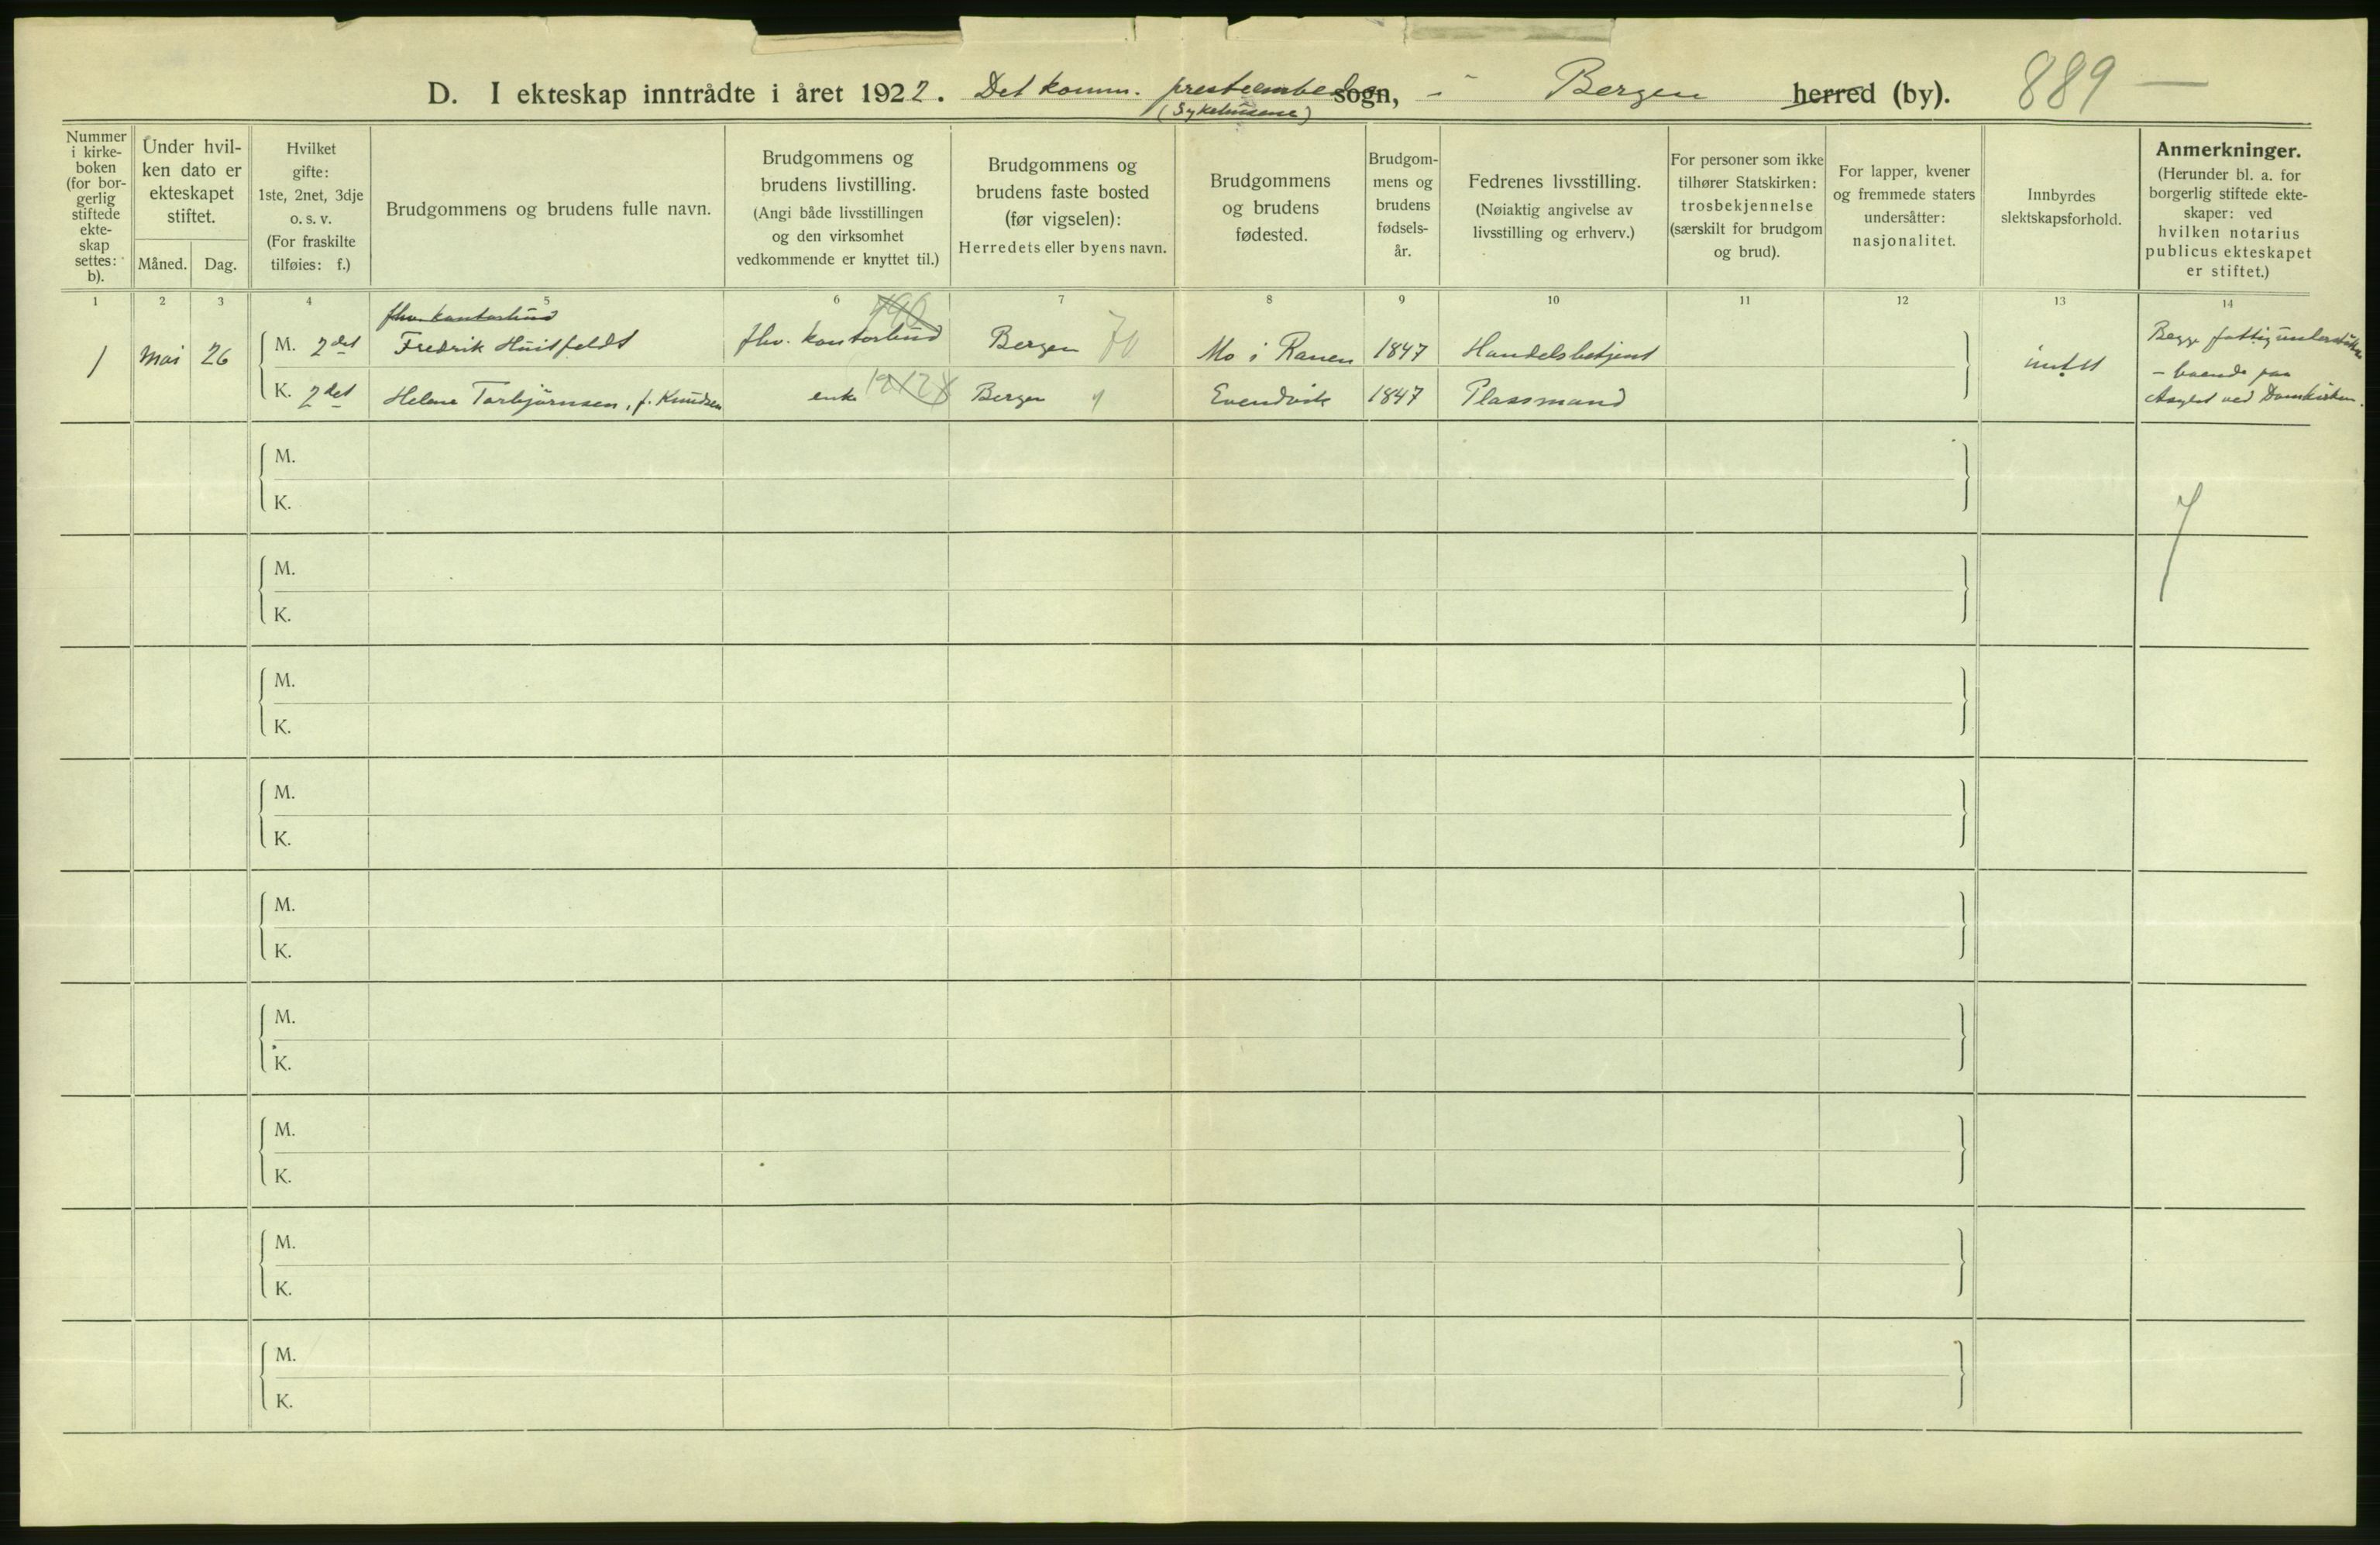 D. I ekteskap inntrådte i året 1922. Det komm. presteembede sogn, - Bergen herred (by). 889 —
(Sykehusene)
Nummer i kirke- boken (for bor- gerlig stiftede ekte- skap settes: b).
Under hvil- ken dato er ekteskapet stiftet.
Måned. Dag.
Hvilket gifte: 1ste, 2net, 3dje o. s. v. (For fraskilte tilføies: f.)
Brudgommens og brudens fulle navn.
Brudgommens og brudens livstilling. (Angi både livsstillingen og den virksomhet vedkommende er knyttet til.)
Brudgommens og brudens faste bosted (før vigselen): Herredets eller byens navn.
Brudgommens og brudens fødested.
Brudgom- mens og brudens fødsels- år.
Fedrenes livsstilling. (Nøiaktig angivelse av livsstilling og erhverv.)
For personer som ikke tilhører Statskirken: trosbekjennelse (særskilt for brudgom og brud).
For lapper, kvener og fremmede staters undersåtter: nasjonalitet.
Innbyrdes slektskapsforhold.
Anmerkninger. (Herunder bl. a. for borgerlig stiftede ekte- skaper: ved hvilken notarius publicus ekteskapet er stiftet.)
1 2 3 4 5 6 7 8 9 10 11 12 13 14
fhv. kontorbud
1 Mai 26 M. 2det Fredrik Huitfeldt fhv. kontorbud Bergen 70 Mo i Ranen 1847 Handelsbetjent intet Begge fattigunderstøttede
K. 2det Helene Torbjørnsen, f. Knudsen enke Bergen Evendvik 1847 Plassmand
- boende paa
Asylet ved Domkirken.
M.
K.
M.
K.
M.
K.
M.
K.
M.
K.
M.
K.
M.
K.
M.
K.
M.
K.